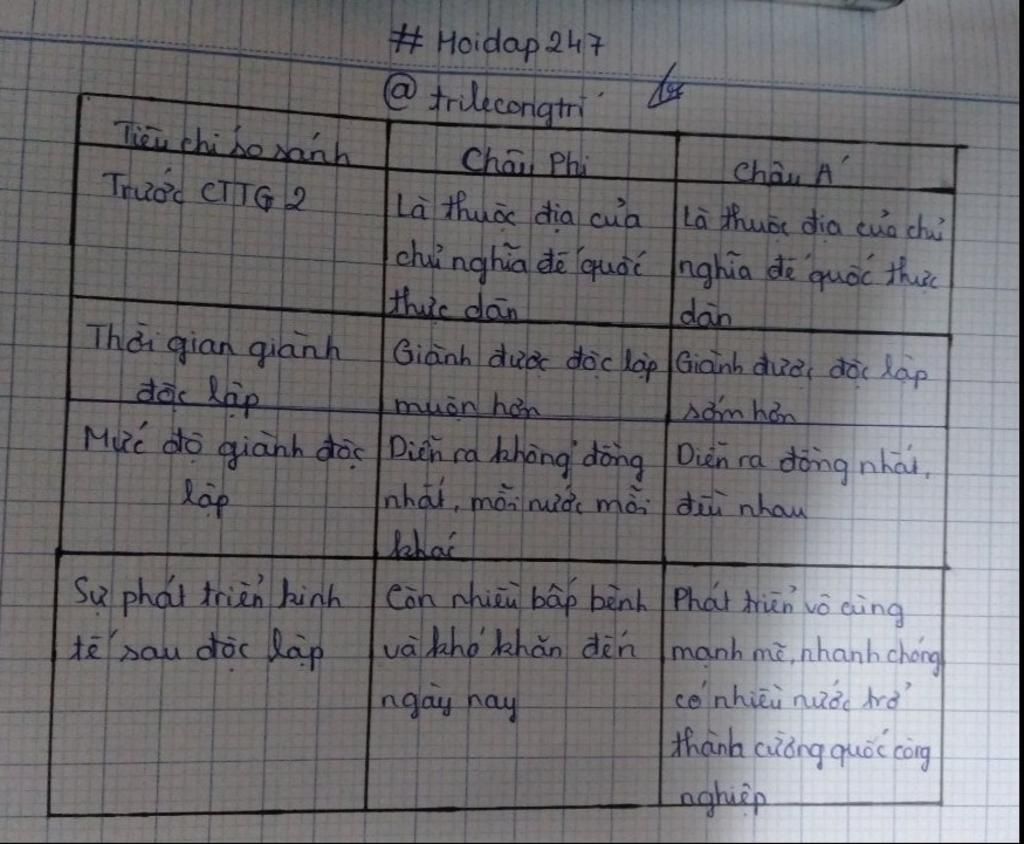 # Hoidap247
@ trilecongtri
Tiêu chí so sánh
Châu Phi
Châu Á
Trước CTTG 2
Là thuộc địa của
chủ nghĩa đế quốc
thực dân
Là thuộc địa của chủ
nghĩa đế quốc thực
dân
Thời gian giành
độc lập
Giành được độc lập
muộn hơn
Giành được độc lập
sớm hơn
Mức độ giành độc
lập
Diễn ra không đồng
nhất, mỗi nước mỗi
khác
Diễn ra đồng nhất,
đều nhau
Sự phát triển kinh
tế sau độc lập
Còn nhiều bấp bênh
và khó khăn đến
ngày nay
Phát triển vô cùng
mạnh mẽ, nhanh chóng
có nhiều nước trở
thành cường quốc công
nghiệp